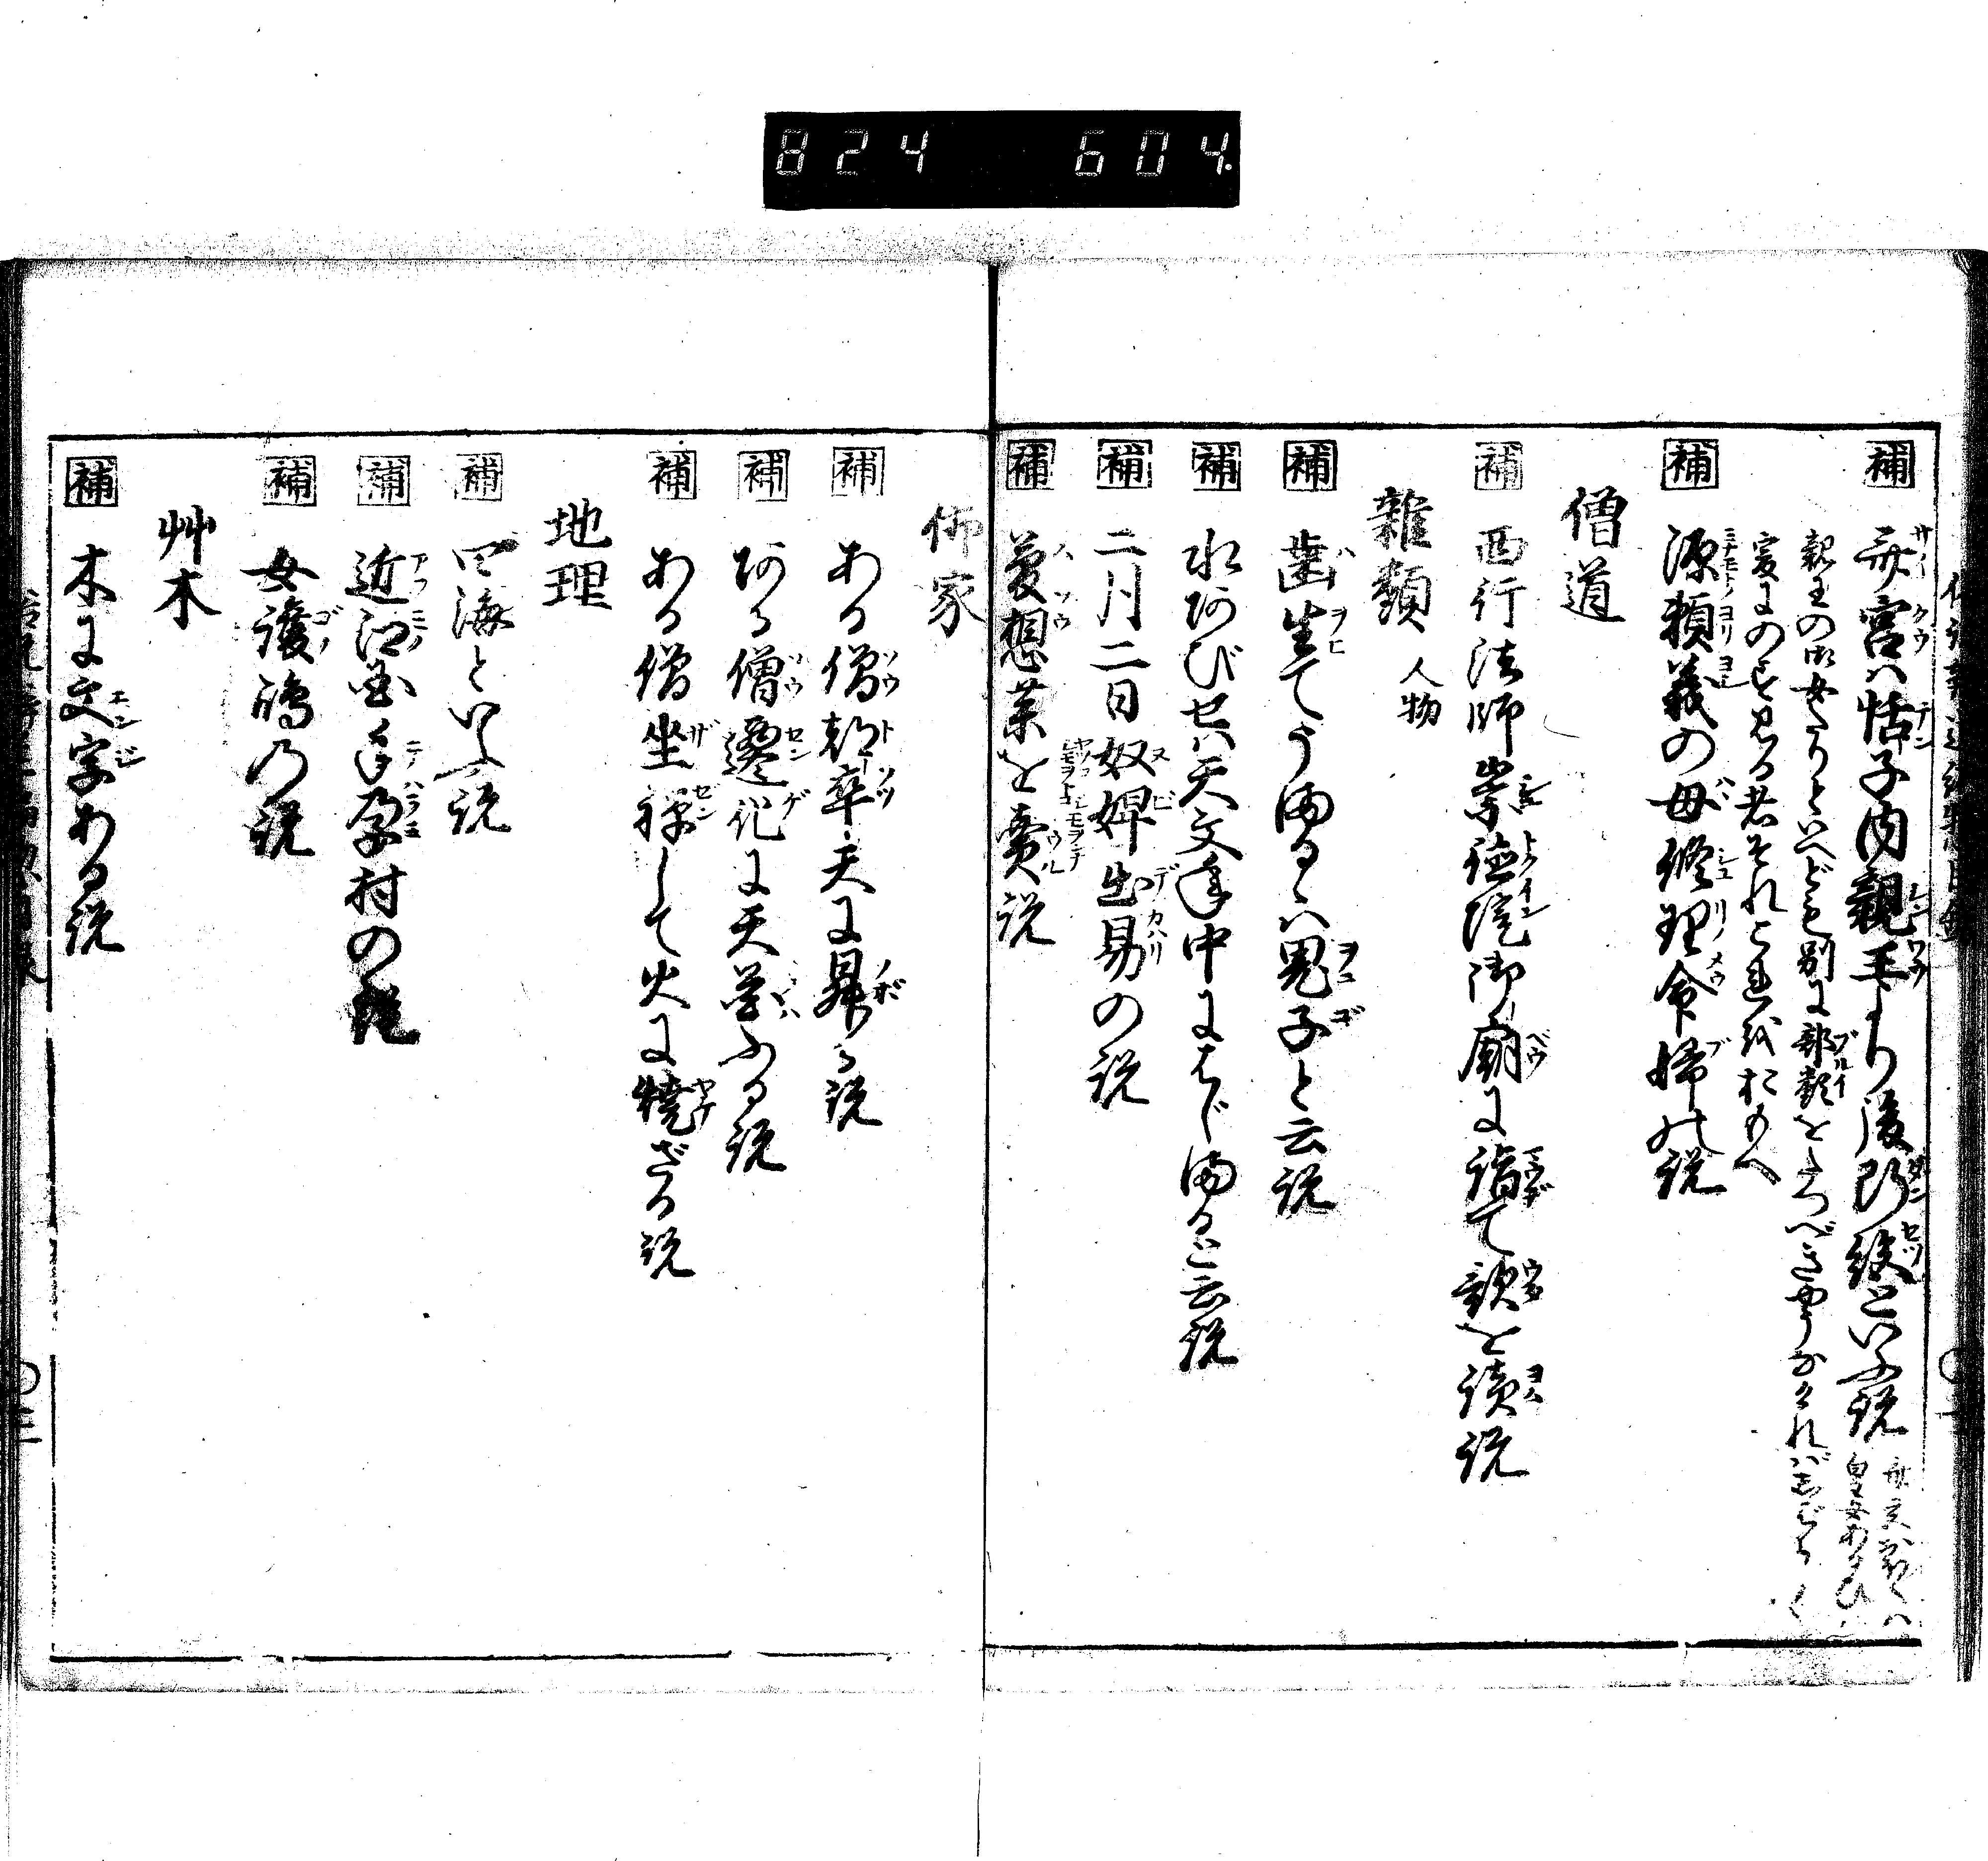 824 604
補 斎宮ハ恬子内親王より後断絶といふ説
親王の御女たりといへども別に部類をたつべきやうなければしばらく
爰にのミ見る者それこれをおもへ
補 源頼義の母修理命婦の説
僧道
補 西行法師崇徳院御廟に詣て歌を読説
雑類 人物
補 歯生てうまるゝハ鬼子と云説
補 水あびせハ天文年中にはじまると云説
補 二月二日奴婢出易の説
補 夢想薬を賣説
佛家
補 ある僧都卒天に昇る説
補 ある僧遷化に天花ふる説
補 ある僧坐禅して火に焼ざる説
地理
補 四海といふ説
補 近江国手孕村の説
補 女護嶋の説
艸木
補 木に文字ある説